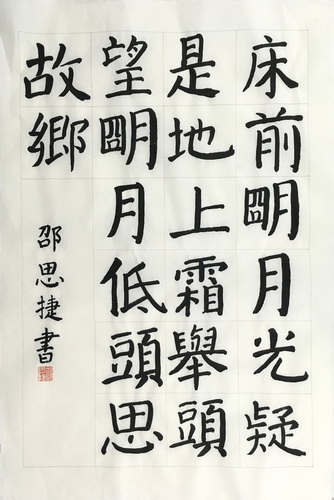 床前朙月光疑
是地上霜舉頭
望朙月低頭思
故鄉
邵思捷書